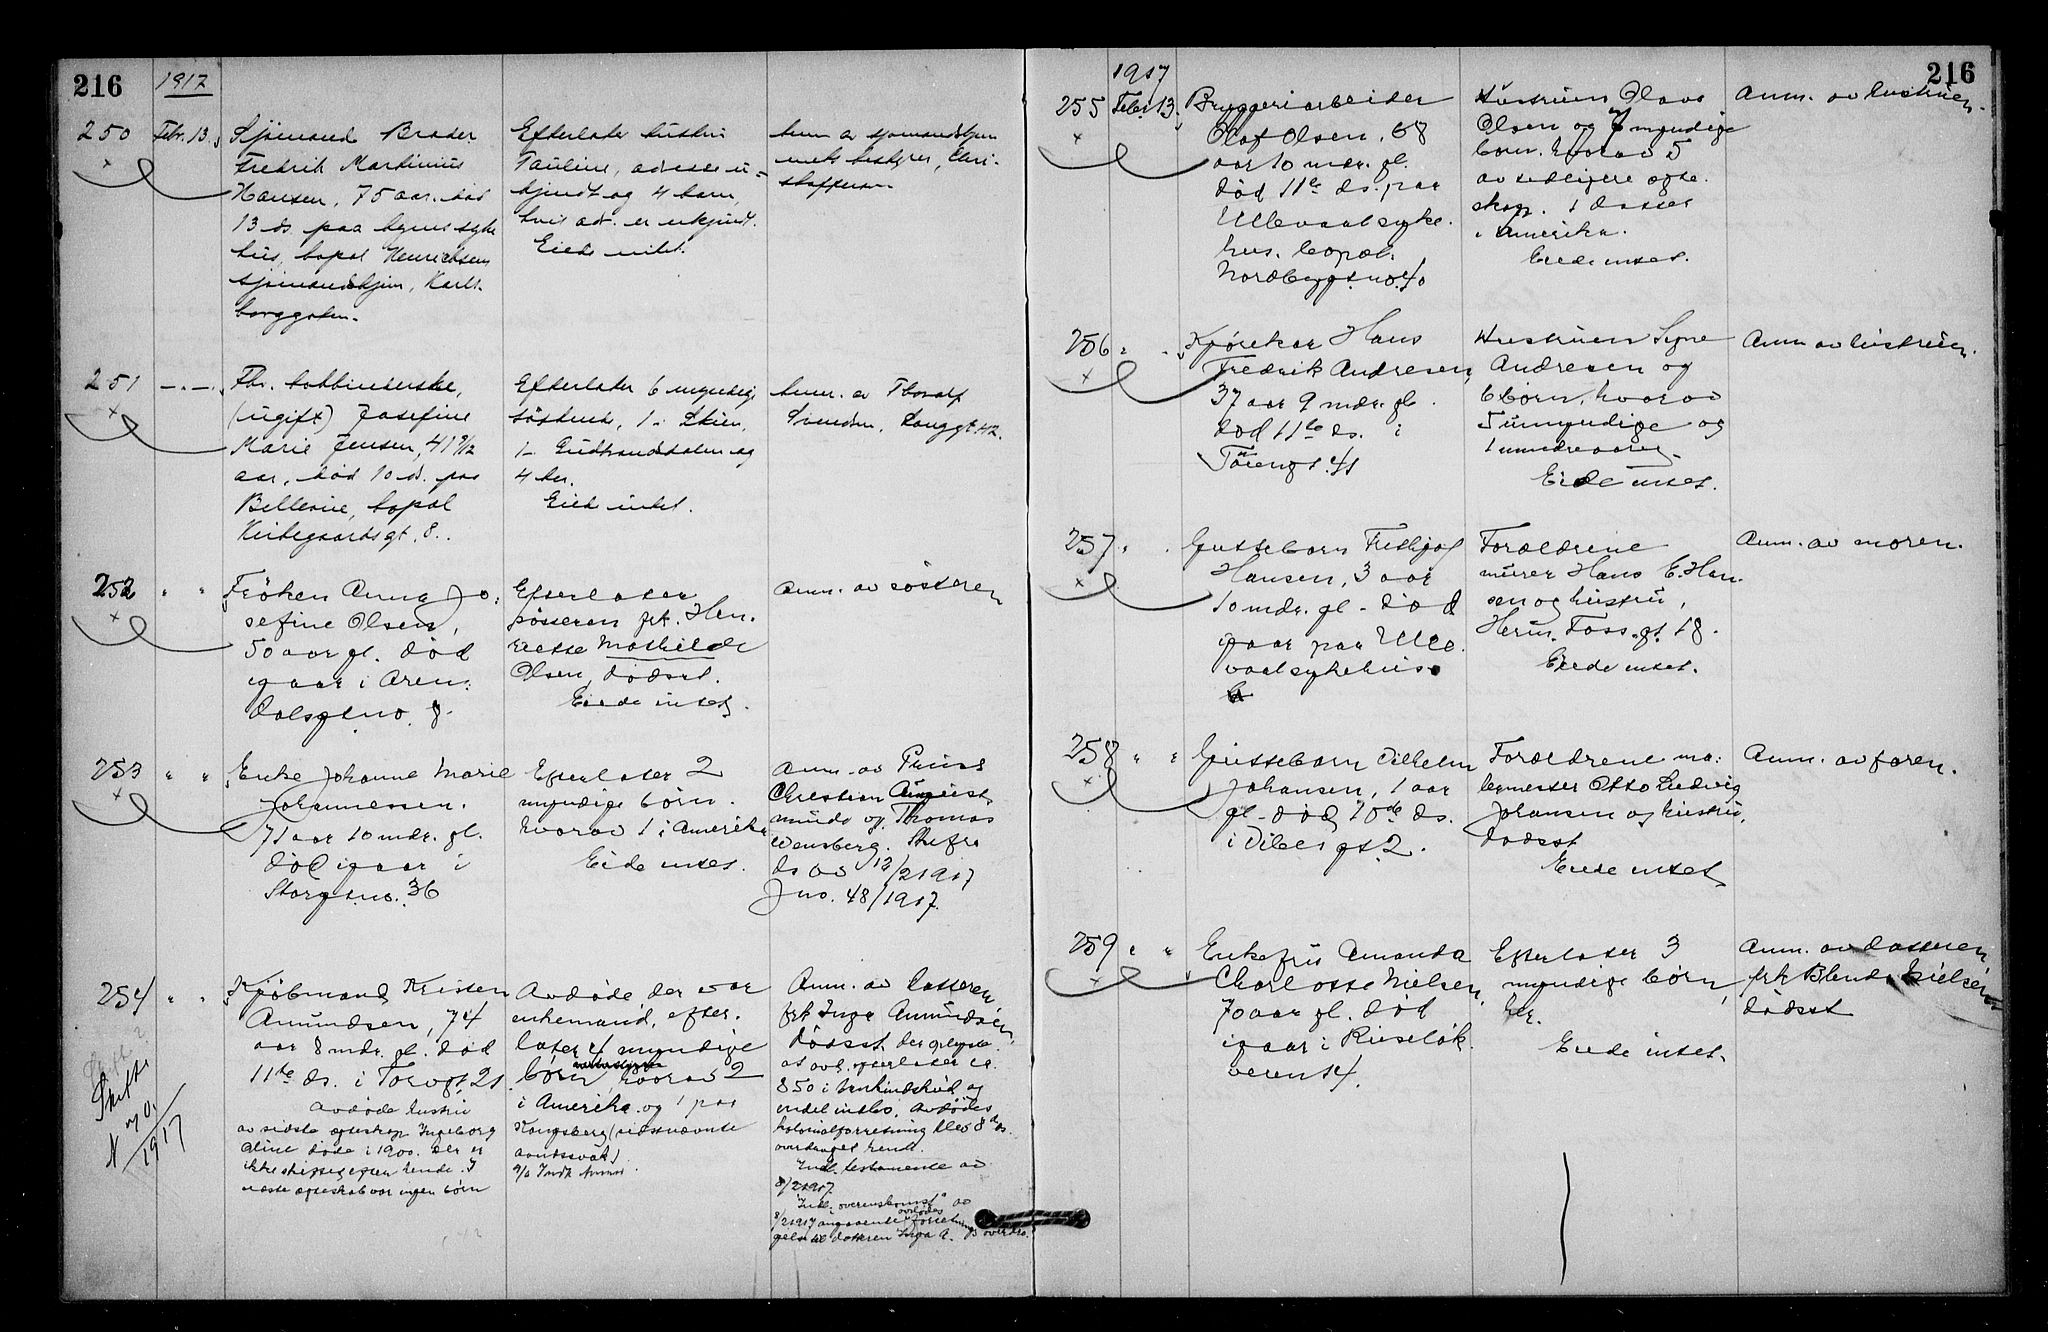 216
1917
250 Febr. 13. Sjømand Brader
Fredrik Martinius
Hansen, 75 aar, død
13 ds. paa byens syke
hus, bopæl Henrichsens
sjømandshjem, Karl
borggaten.
Efterlater hustru
Pauline, adresse u-
kjendt og 4 barn,
hvis adr. er ukjendt.
Eiede intet.
Anm. av sjømandshjem
mets bestyrer, Chri-
stoffersen
251 —"—
Fhv. bokbinderske,
(ugift) Josefine
Marie Jensen, 41 9/12
aar, død 10 ds. paa
Bellevue, bopæl
Kirkegaardsgt. 8.
Efterlater 6 myndige
søskende, 1 i Skien,
1 i Gudbrandsdalen og
4 her.
Eied intet.
Anm. av Thoralf
Svendsen, Langgt 42.
252 " "
Frøken Anna Jo-
sefine Olsen,
50 aar gl. død
igaar i Aren-
dalsgt no 8.
Efterlater
søsteren frk. Hen-
riette Mathilde
Olsen, dødsst.
Eiede intet.
Anm. av søsteren
253 " "
Enke Johanne Marie
Johannessen.
71 aar 10 mdr. gl.
død igaar i
Storgt no. 36
Efterlater 2
myndige børn.
hvorav 1 i Amerika
Eiede intet.
Anm. av
Christian August
og Thomas
Skifte
ds av 12/2 1917
Jno. 48/1917.
254 " "
Kjøbmand Kristen
Amundsen, 74
aar 8 mdr. gl. død
11te ds. i Torvgt. 21
Avdøde hustru
av sidste egteskap Ingeborg
Oline døde i 1900. Der er
ikke skiftet efter hende. I
næste egteskab var ingen børn
Skifte
N 90.
1917
Avdøde, der var
enkemand, efter-
later 4 myndige
børn hvorav 2
i Amerika og 1 paa
Kongsberg (sidstnævnte
aandssvak)
Anm. av datteren,
frk Inga Amundsen,
Dødsst. der oplyste
at avd. efterlater ca.
850 i bankindskud og
endel indbo. Avdødes
kolonialforretning blev 8 ds.
overdraget hende.
Indl. testamente av
8/2 1917.
Indl. "overenskomst" av
8/2 1917 angaaende avdødes forretnings overdra-
gelse til datteren Inga A.
216
1917
255 Febr. 13. Bryggeriarbeider
Olaf Olsen, 68
aar 10 mdr. gl.
død 11te ds. paa
Ullevaal syke-
hus. bopæl
Nordbygt. no. 40
Hustruen Olava
Olsen og 7 myndige
børn. hvorav 5
av tidligere egte-
skap. 1 datter
i Amerika.
Eiede intet.
Anm. av hustruen.
256 " "
Kjørekar Hans
Fredrik Andresen,
37 aar 9 mdr. gl.
død 11te ds. i
Tøiengt. 41
Hustruen Signe
Andresen og
6 børn, hvorav
5 umyndige og
1 mindreaarig.
Eiede intet.
Anm av hustruen.
257 " "
Guttebarn Fridtjof
Hansen, 3 aar
10 mdr. gl. død
igaar paa Ulle-
vaal sykehus.
Forældrene
murer Hans E. Han-
sen og hustru,
Herm. Foss. gt. 18.
Eiede intet.
Anm. av moren.
258 " "
Guttebarn Vilhelm
Johansen, 1 aar
gl. død 10de ds.
i Vibes gt. 2.
Forældrene ma-
lermester Otto Ludvig
Johansen og hustru,
dødsst
Eiede intet.
Anm. av faren.
259 " "
Enkefru Amanda
Charlotte Nielsen,
70 aar gl. død
igaar i Ruseløk-
veien 14.
Efterlater 3
myndige børn,
her.
Eiede intet.
Anm. av datteren
frk Blenda Nielsen
dødsst